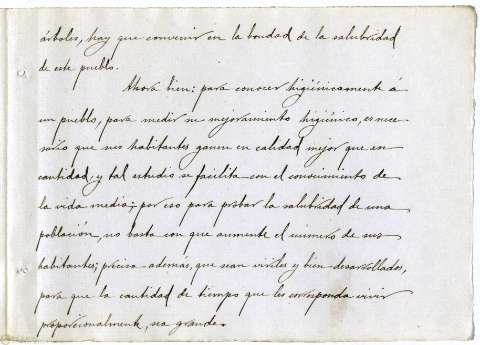 árboles, hay que convenir en la bondad de la salubridad
de este pueblo.
Ahora bien: para conocer higiénicamente á
un pueblo, para medir su mejoramiento higiénico, es nece-
sario que sus habitantes ganen en calidad mejor que en
cantidad, y tal estudio se facilita con el conocimiento de
la vida media; por eso para probar la salubridad de una
población, no basta con que aumente el número de sus
habitantes; precisa además, que sean viriles y bien desarrollados,
para que la cantidad de tiempo que les corresponda vivir
proporcionalmente, sea grande.